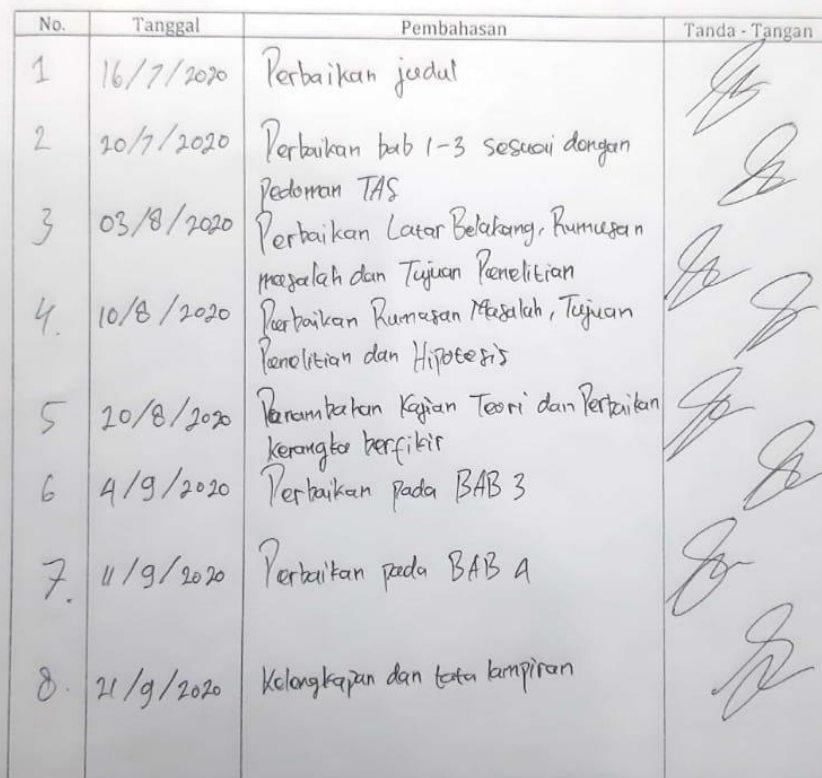 No. Tanggal Pembahasan Tanda - Tangan
1 16/7/2020 Perbaikan judul
2 20/7/2020 Perbaikan bab 1-3 sesuai dengan
Pedoman TAS
3 03/8/2020 Perbaikan Latar Belakang, Rumusan
masalah dan Tujuan Penelitian
4. 10/8/2020 Perbaikan Rumusan Masalah, Tujuan
Penelitian dan Hipotesis
5 20/8/2020 Penambahan Kajian Teori dan Perbaikan
kerangka berfikir
6 4/9/2020 Perbaikan pada BAB 3
7. 11/9/2020 Perbaikan pada BAB 4
8. 21/9/2020 Kelengkapan dan tata lampiran